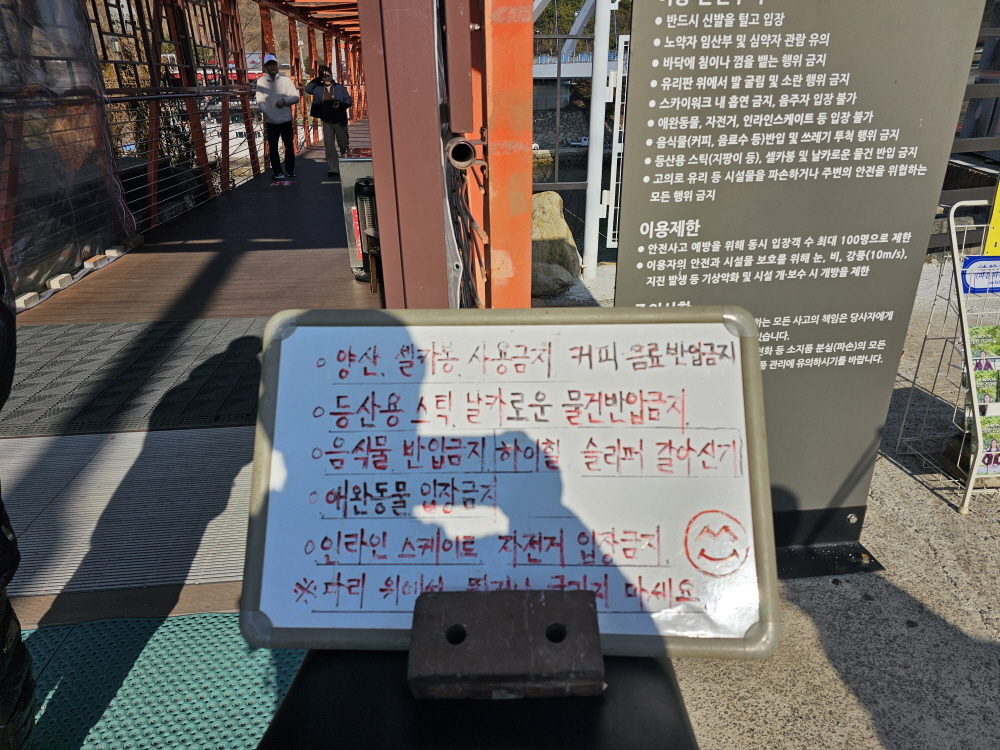 ● 반드시 신발을 털고 입장
● 노약자 임산부 및 심약자 관람 유의
● 바닥에 침이나 껌을 뱉는 행위 금지
● 유리판 위에서 발 굴림 및 소란 행위 금지
● 스카이워크 내 흡연 금지, 음주자 입장 불가
● 애완동물, 자전거, 인라인스케이트 등 입장 불가
● 음식물(커피, 음료수 등)반입 및 쓰레기 투척 행위 금지
● 등산용 스틱(지팡이 등), 셀카봉 및 날카로운 물건 반입 금지
● 고의로 유리 등 시설물을 파손하거나 주변의 안전을 위협하는
모든 행위 금지
이용제한
● 안전사고 예방을 위해 동시 입장객 수 최대 100명으로 제한
● 이용자의 안전과 시설물 보호를 위해 눈, 비, 강풍(10m/s),
지진 발생 등 기상악화 및 시설 개·보수 시 개방을 제한
하는 모든 사고의 책임은 당사자에게
있습니다.
등 소지품 분실(파손)의 모든
관리에 유의하시기를 바랍니다.
○ 양산, 셀카봉 사용금지 커피 음료 반입금지
○ 등산용 스틱, 날카로운 물건반입금지
○ 음식물 반입금지 하이힐 슬리퍼 갈아신기
○ 애완동물 입장금지
○ 인라인 스케이트 자전거 입장금지
※ 다리 위에서 마세요.